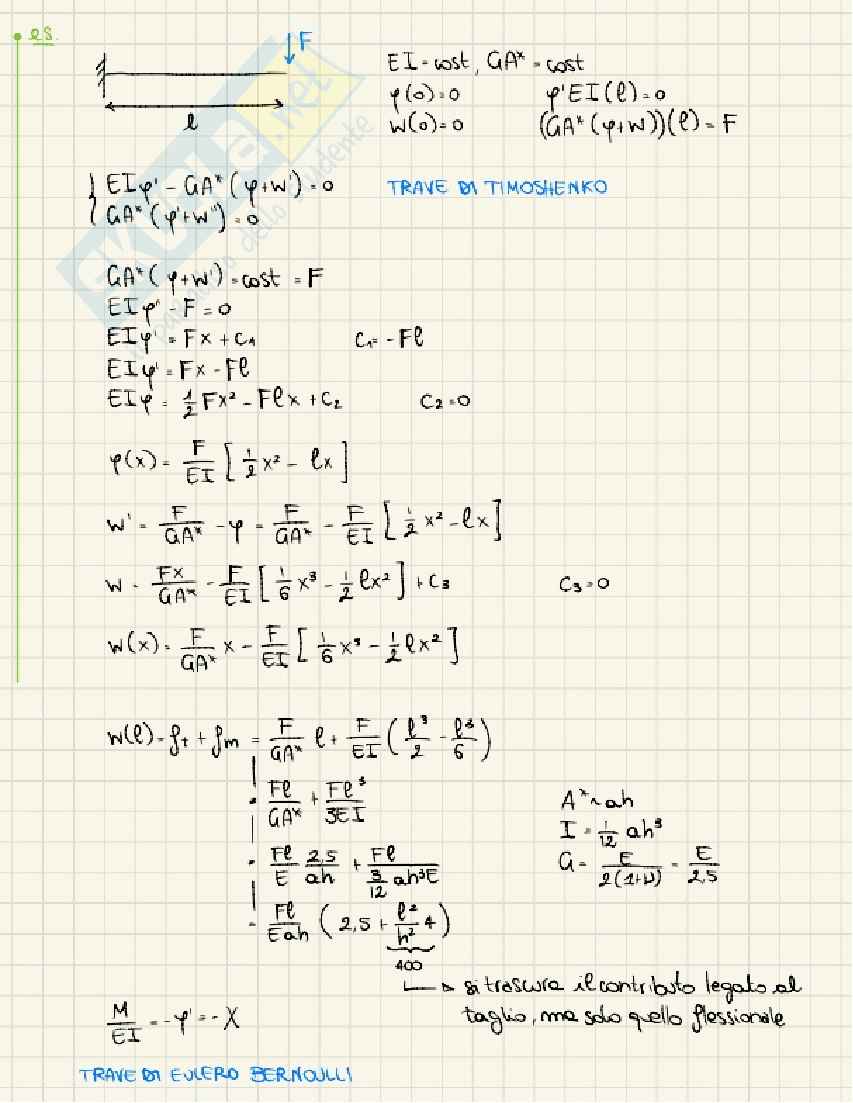 es.
F
l
EI = cost, GA* = cost
φ(0)=0 φ'EI(l)=0
w(0)=0 (GA*(φ+w))(l) = F
{ EIφ' - GA*(φ+w')=0
{ GA*(φ'+w'')=0
TRAVE DI TIMOSHENKO
GA*(φ+w')=cost = F
EIφ'' - F = 0
EIφ' = Fx + C₁ C₁ = - Fl
EIφ' = Fx - Fl
EIφ = 1/2 Fx² - Flx + C₂ C₂=0
φ(x) = F/EI [1/2 x² - lx]
w' = F/GA* - φ = F/GA* - F/EI [1/2 x² - lx]
w = Fx/GA* - F/EI [1/6 x³ - 1/2 lx²] + C₃ C₃=0
w(x) = F/GA* x - F/EI [1/6 x³ - 1/2 lx²]
w(l) = ft + fm = F/GA* l + F/EI (l³/2 - l³/6)
= Fl/GA* + Fl³/3EI
= Fl/E 2,5/ah + Fl/(3/12 ah³E)
= Fl/Eah (2,5 + l²/h² 4)
400
A* ~ ah
I = 1/12 ah³
G = E/2(1+ν) = E/2,5
si trascura il contributo legato al
taglio, ma solo quello flessionale
M/EI = -φ' = -χ
TRAVE DI EULERO BERNOULLI
SKUOLA.net
il paradiso dello studente